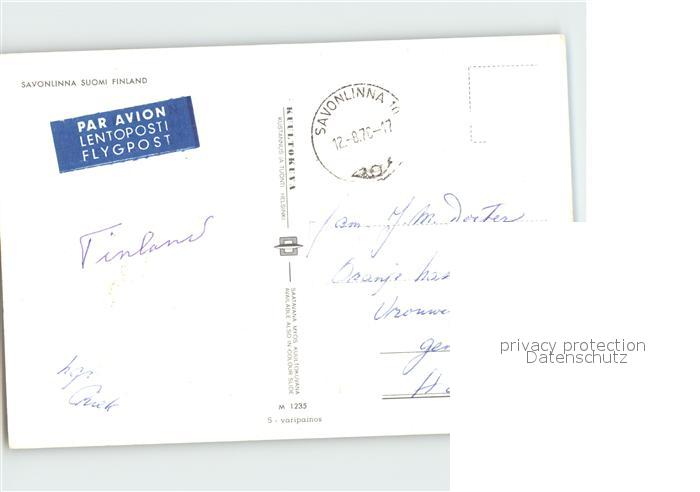 SAVONLINNA SUOMI FINLAND
PAR AVION
LENTOPOSTI
FLYGPOST
Finland
KUULTOKUVA
KUSTANNUS JA TUONTI HELSINKI
SAATAVANA MYÖS KUULTOKUVANA
AVAILABLE ALSO IN COLOUR SLIDE
M 1235
5 - varipainos
SAVONLINNA 10
12.-8.76-17
Fam J. M. Doeter
Oranje
Vrouwe
gen
privacy protection
Datenschutz